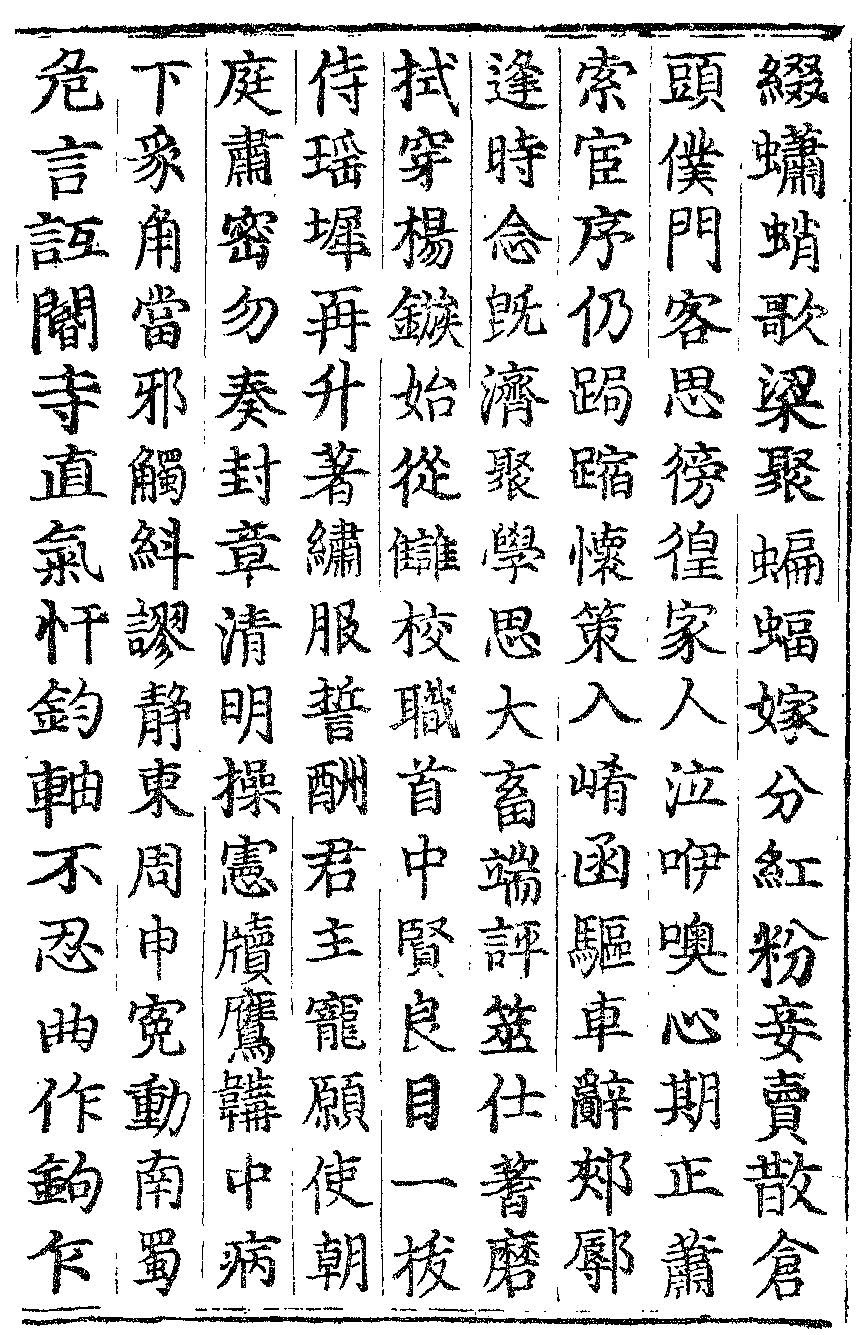 綴蠨蛸歌梁聚蝙蝠嫁分紅粉妾賣散倉
頭僕門客思徬徨家人泣咿噢心期正蕭
索宦序仍跼蹜懷策入崤函驅車辭郟鄏
逢時念既濟聚學思大畜端評筮仕蓍磨
拭穿楊鏃始從讎校職首中賢良目一拔
侍瑶墀再升著繡服誓酬君主寵願使朝
庭肅密勿奏封章清明操憲牘鷹韝中病
下豸角當邪觸糾謬静東周申寃動南蜀
危言詆閽寺直氣忓鈞軸不忍曲作鉤乍